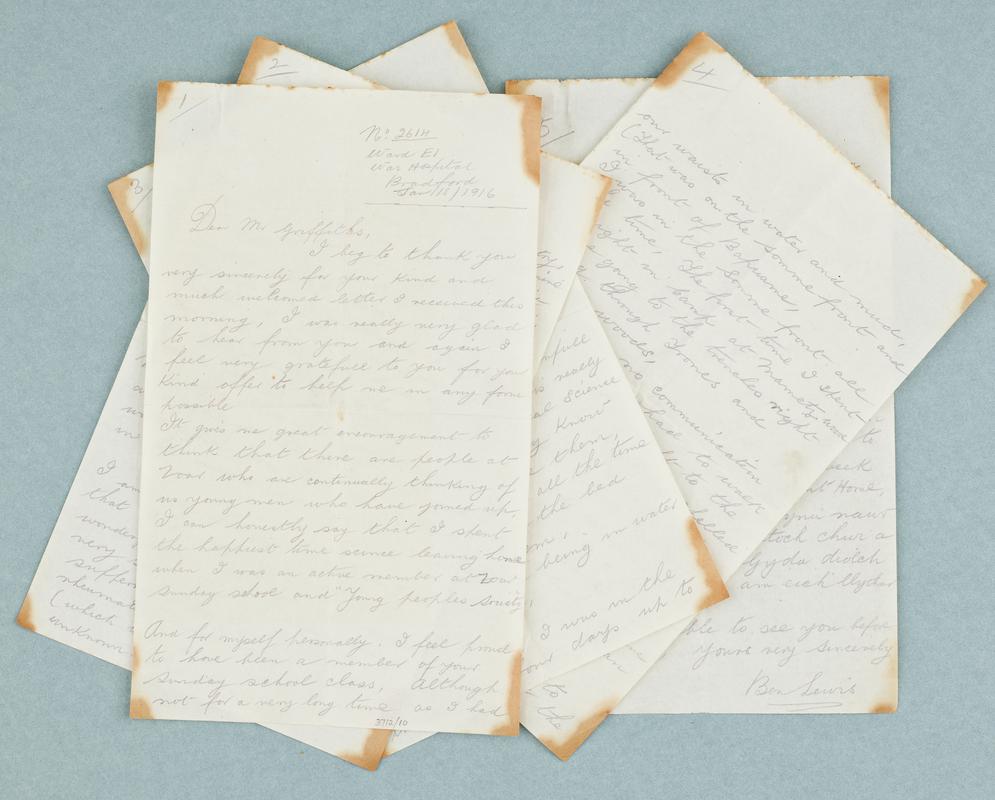 1/
No. 2614
Ward E1
War Hospital
Bradford
Jan /18/1916
Dear Mr Griffiths,
I beg to thank you
very sincerely for your kind and
much welcomed letter I received this
morning, I was really very glad
to hear from you and again I
feel very gratefull to you for your
kind offer to help me in any form
possible
It gives me great encouragement to
think that there are people at
Zoar who are continually thinking of
us young men who have joined up,
I can honestly say that I spent
the happiest time scince leaving home
when I was an active member at Zoar
Sunday school and "Young peoples Society
And for myself personally. I feel proud
to have been a member of your
Sunday school class, Although
not for a very long time as I had
3712/10
2
3/
I am
that
wonder
very
suffer
rheumat
(which
unknown
is really
al Science
Know-
them,
all the time
the bed
being in water
I was in the
our days up to
to
the
4
our waists in water and mud,
(That was on the Somme front and
in front of Bapaume,
in the Somme front all
time, The first time I spent
in camp at Mametz wood
going to the trenches night
through Trones and
woods,
no communication
to walk
to the
5/
to
eek
at Home,
ynii nawr
loch chwi a
Gyda diolch
am eich llythyr
ble to see you before
yours very sincerely
Ben Lewis